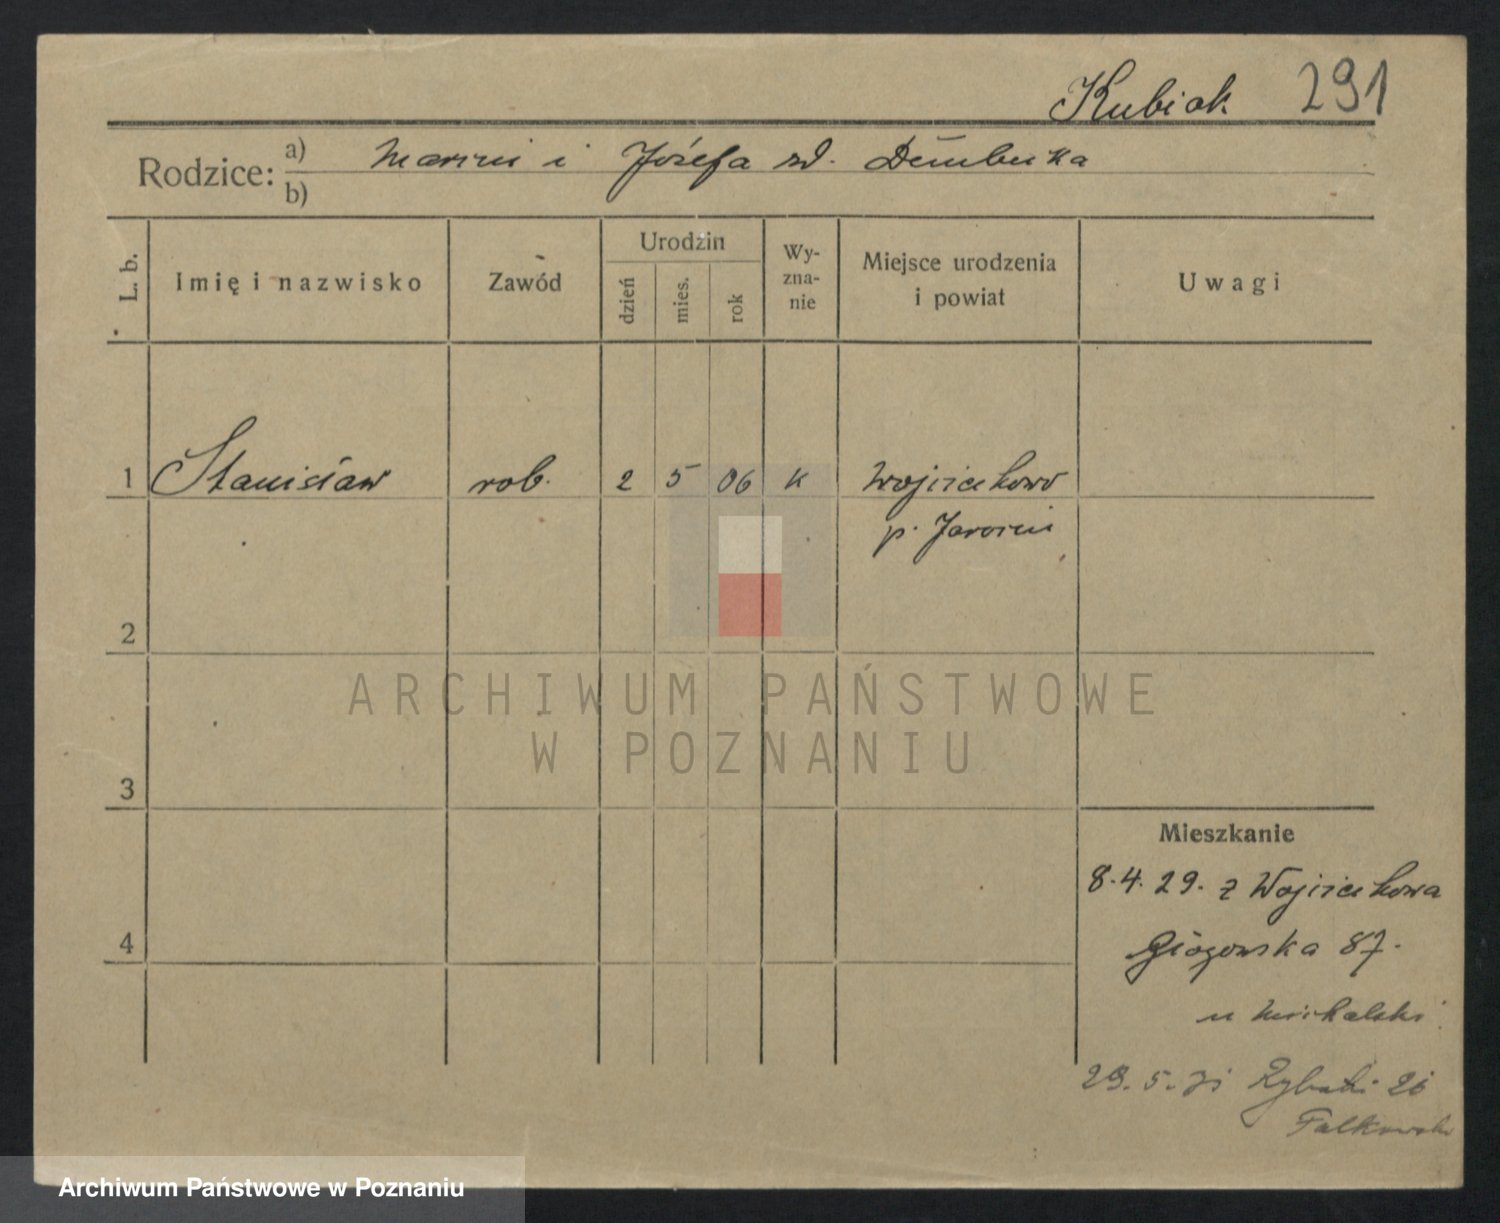 Kubiak 291
Rodzice: a) Marcin i Józefa zd. Dembska
b)
L. b.
Imię i nazwisko
Zawód
Urodzin
dzień
mies.
rok
Wy-
zna-
nie
Miejsce urodzenia
i powiat
Uwagi
1 Stanisław rob. 2 5 06 k Wojciechowo
p. Jarocin
2
ARCHIWUM PAŃSTWOWE
W POZNANIU
3
Mieszkanie
8.4.29. z Wojciechowa
4
Głogowska 87.
u Michalski
29.5.31 Rybaki 26
Falkowski
Archiwum Państwowe w Poznaniu